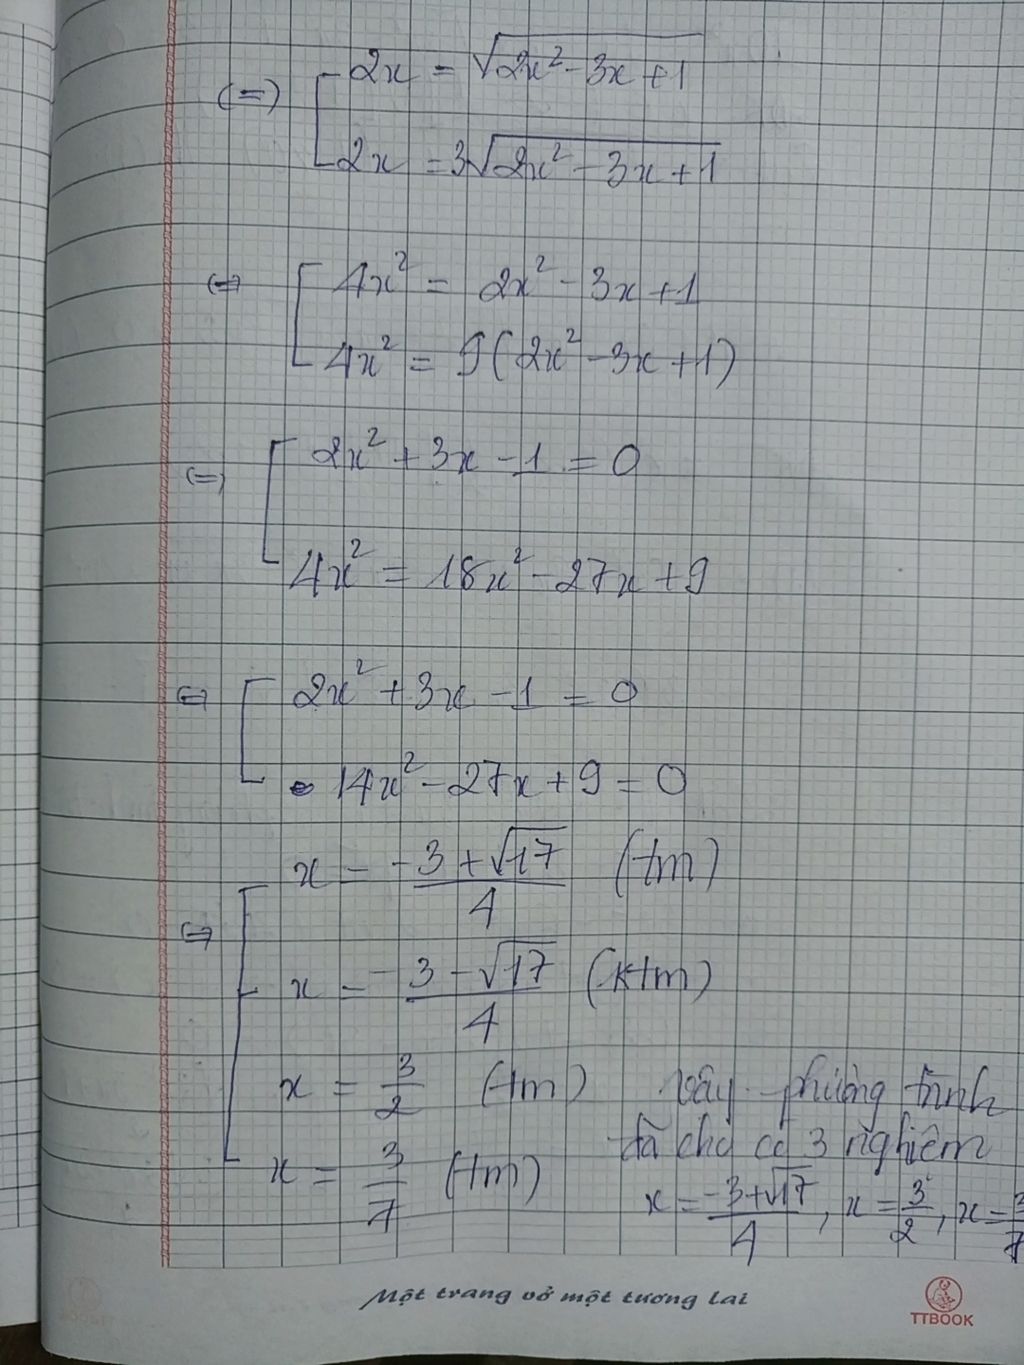 (=) [ 2x = √(2x² - 3x + 1)
2x = 3√(2x² - 3x + 1)
(=) [ 4x² = 2x² - 3x + 1
4x² = 9(2x² - 3x + 1)
(=) [ 2x² + 3x - 1 = 0
4x² = 18x² - 27x + 9
(=) [ 2x² + 3x - 1 = 0
14x² - 27x + 9 = 0
(=) [ x = (-3 + √17)/4 (tm)
x = (-3 - √17)/4 (ktm)
x = 3/2 (tm)
x = 3/7 (tm)
Vậy phương trình
đã cho có 3 nghiệm
x = (-3 + √17)/4, x = 3/2, x = 3/7
Một trang vở một tương lai
TTBOOK